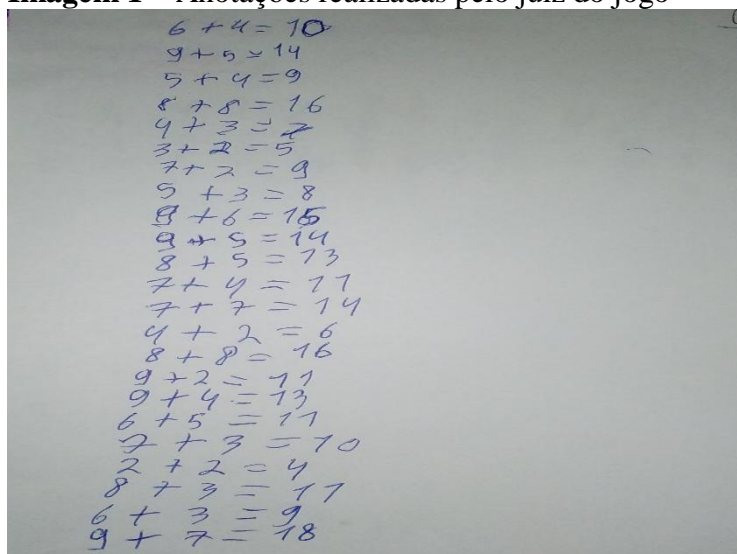 Imagem 1 – Anotações realizadas pelo juiz do jogo
6 + 4 = 10
9 + 5 = 14
5 + 4 = 9
8 + 8 = 16
4 + 3 = 7
3 + 2 = 5
7 + 2 = 9
5 + 3 = 8
9 + 6 = 15
9 + 5 = 14
8 + 5 = 13
7 + 4 = 11
7 + 7 = 14
4 + 2 = 6
8 + 8 = 16
9 + 2 = 11
9 + 4 = 13
6 + 5 = 11
7 + 3 = 10
2 + 2 = 4
8 + 3 = 11
6 + 3 = 9
9 + 7 = 18